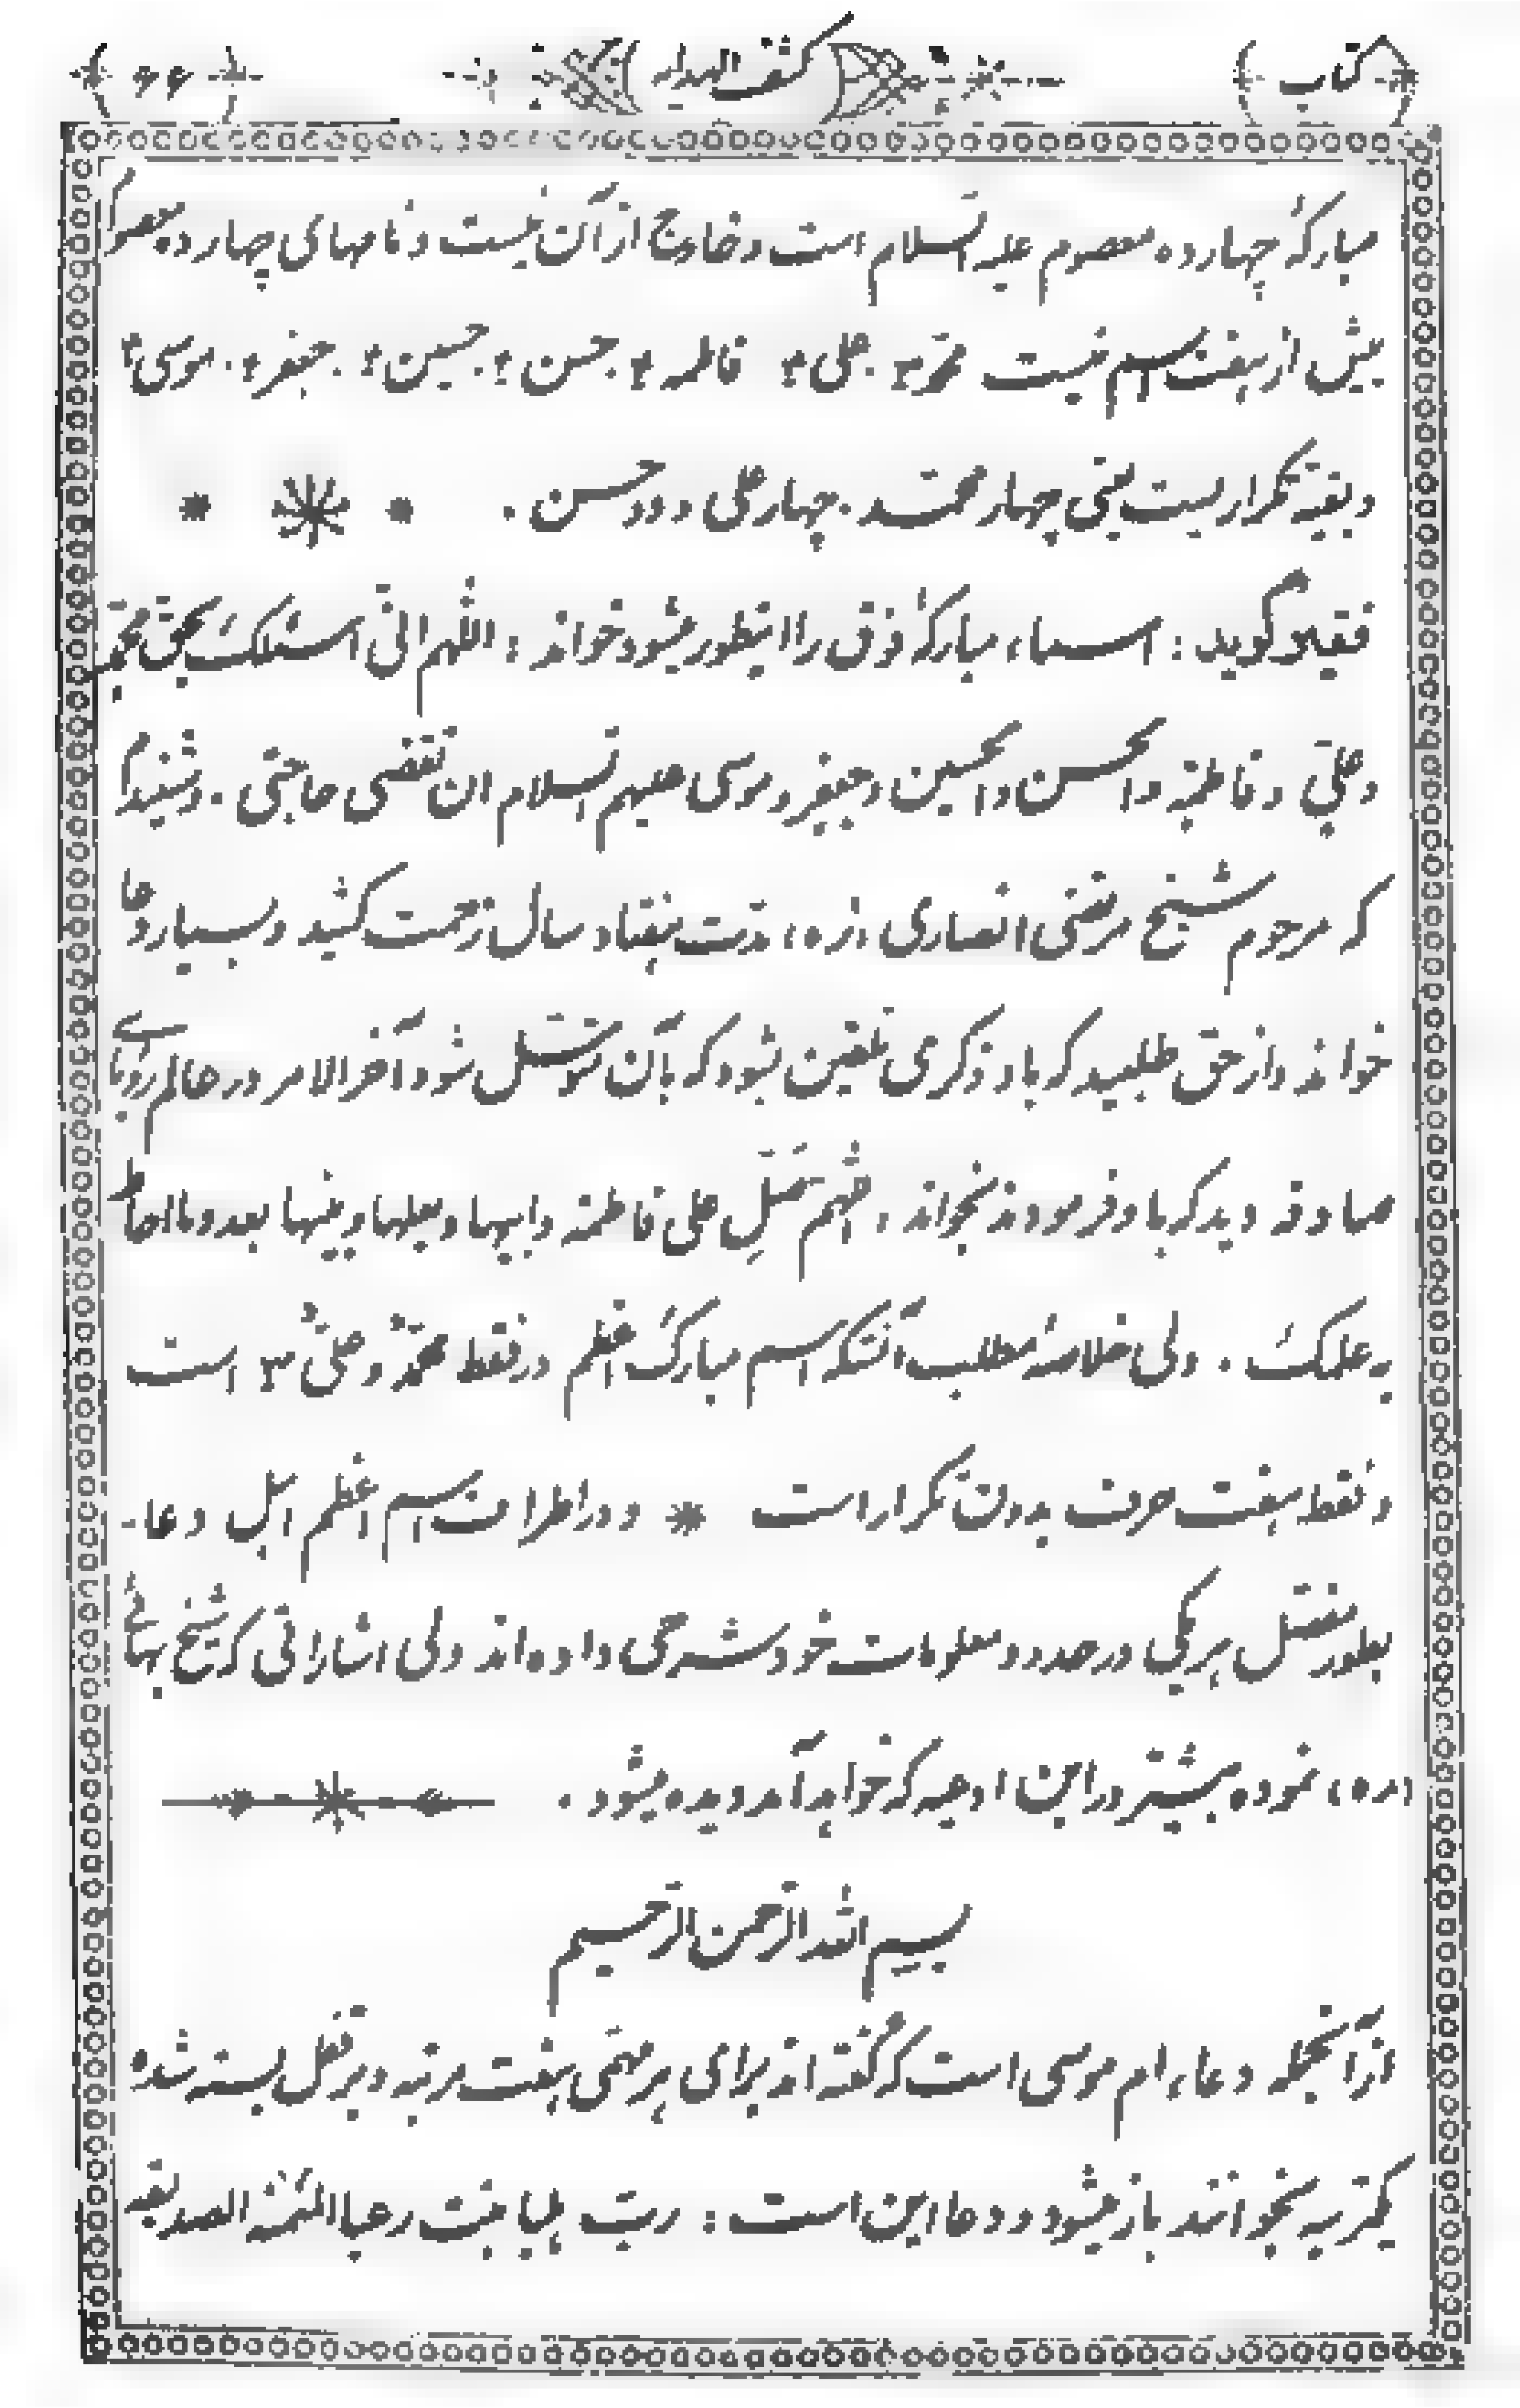 کتاب کشف الهدایه ۶۶
مبارکهٔ چهارده معصوم علیه السلام است و خارج از آن نیست و نامهای چهارده معصوم
بیش از هفت اسم نیست محمد ۳ . علی ۴ فاطمه ۴ . حسن ۴ . حسین ۴ . جعفر ۴ . موسی ۴
و بقیه تکراریست یعنی چهار محمد . چهار علی و دو حسن .
فقیر گوید : اسماء مبارکهٔ فوق را اینطور میشود خواند : اللهم انی اسئلک بحق محمد
و علی و فاطمة و الحسن و الحسین و جعفر و موسی علیهم السلام ان تقضی حاجتی . و شنیدم
که مرحوم شیخ مرتضی انصاری «ره» مدت هفتاد سال زحمت کشید و بسیار دعا
خواند و از حق طلبید که باو ذکری تلقین شود که بآن متوسل شود آخر الامر در عالم رویای
صادقه دید که باو فرمودند بخواند ، اللهم صَلِّ علی فاطمة و ابیها و بعلها و بنیها بعدد ما احاط
به علمک . ولی خلاصهٔ مطلب آنستکه اسم مبارک اعظم در فقط محمدٌ و علیٌ ۳ است
و فقط هفت حرف بدون تکرار است * و در اطراف اسم اعظم اهل دعا
بطور مفصل هر یکی در حدود معلومات خود شرحی داده‌اند ولی اشاراتی که شیخ بهائی
«ره» نموده بیشتر در این ادعیه که خواهد آمد دیده میشود .
بسم الله الرحمن الرحیم
از آنجمله دعاء ام موسی است که گفته اند برای هر مهمی هفت مرتبه و بر قفل بسته شده
یکمرتبه بخوانند باز میشود و دعا این است : ربّ بنت الصدیقه